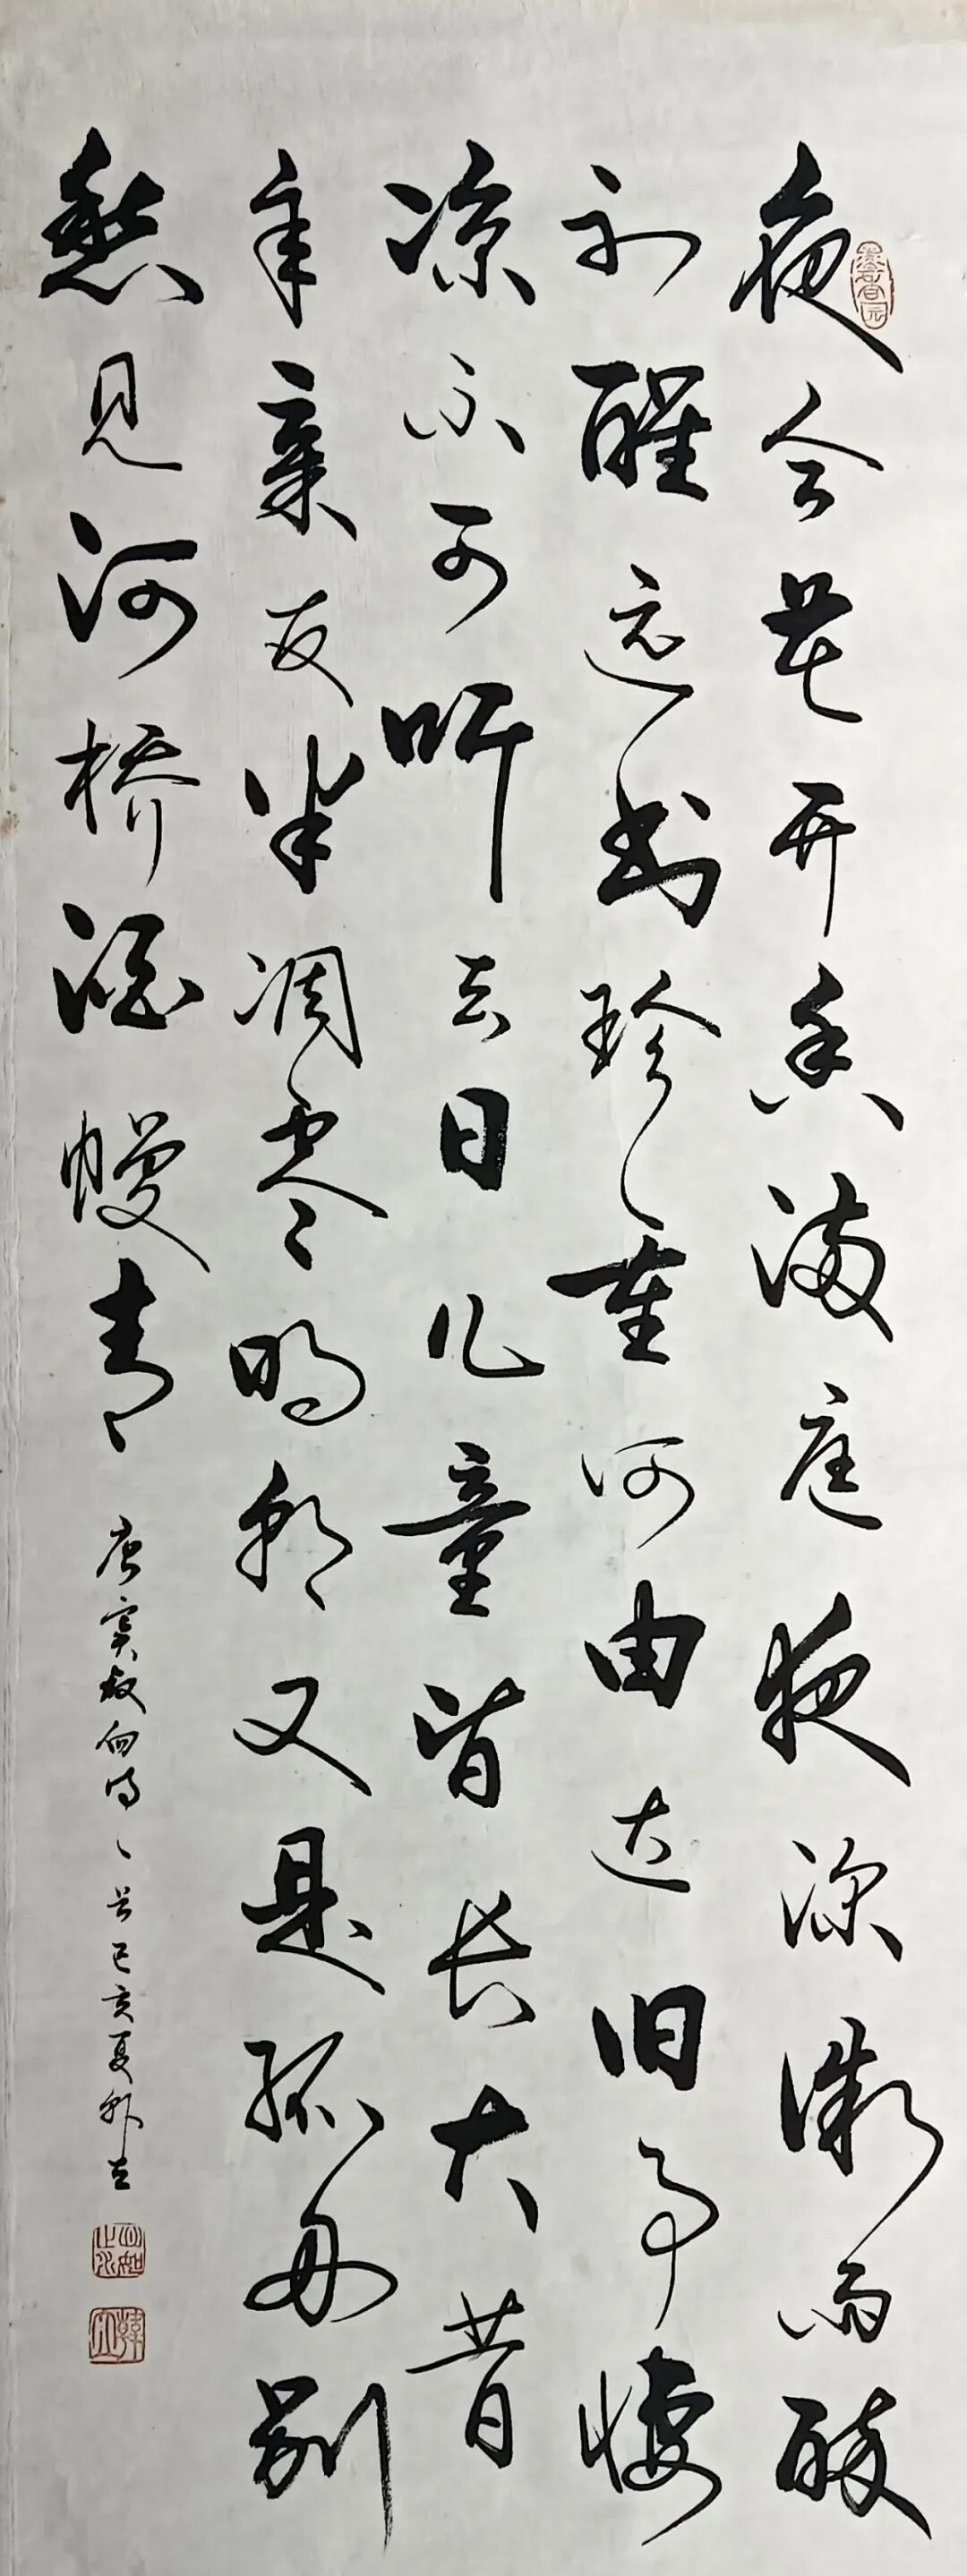 夜合花开香满庭夜深微雨醉
初醒远书珍重何由达旧事悽
凉不可听去日儿童皆长大昔
年亲友半凋零明朝又是孤舟别
愁见河桥酒幔青
唐窦叔向诗一首己亥夏韩立
心如止水
韓立